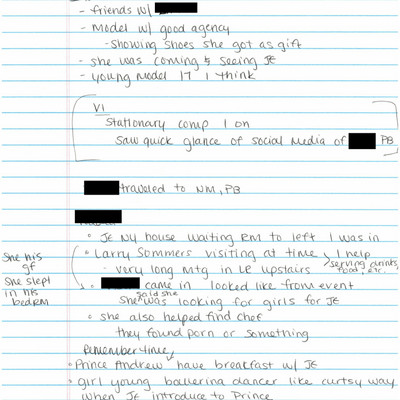 - friends w/
- Model w/ good agency
- showing shoes she got as gift
- she was coming & seeing JE
- young model 17 I think
VI
Stationary comp I on
Saw quick glance of social media of PB
traveled to NM, PB
• JE NY house waiting RM to left I was in
• Larry Sommers visiting at time > I help serving drinks, food, etc.
- very long mtg in LR upstairs
She his gf
She slept in his bedRM
• came in looked like from event
said she
She was looking for girls for JE
• she also helped find chef
they found porn or something
Remember time
• Prince Andrew have breakfast w/ JE
• girl young ballerina dancer like curtsy way
when JE introduce to Prince